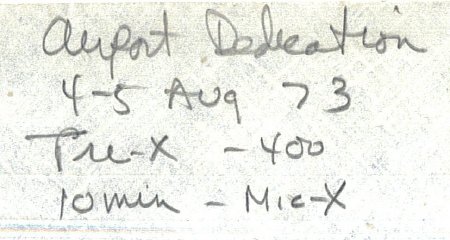 Airport Dedication
4-5 Aug 73
Tri-X - 400
10 min - Mic-X